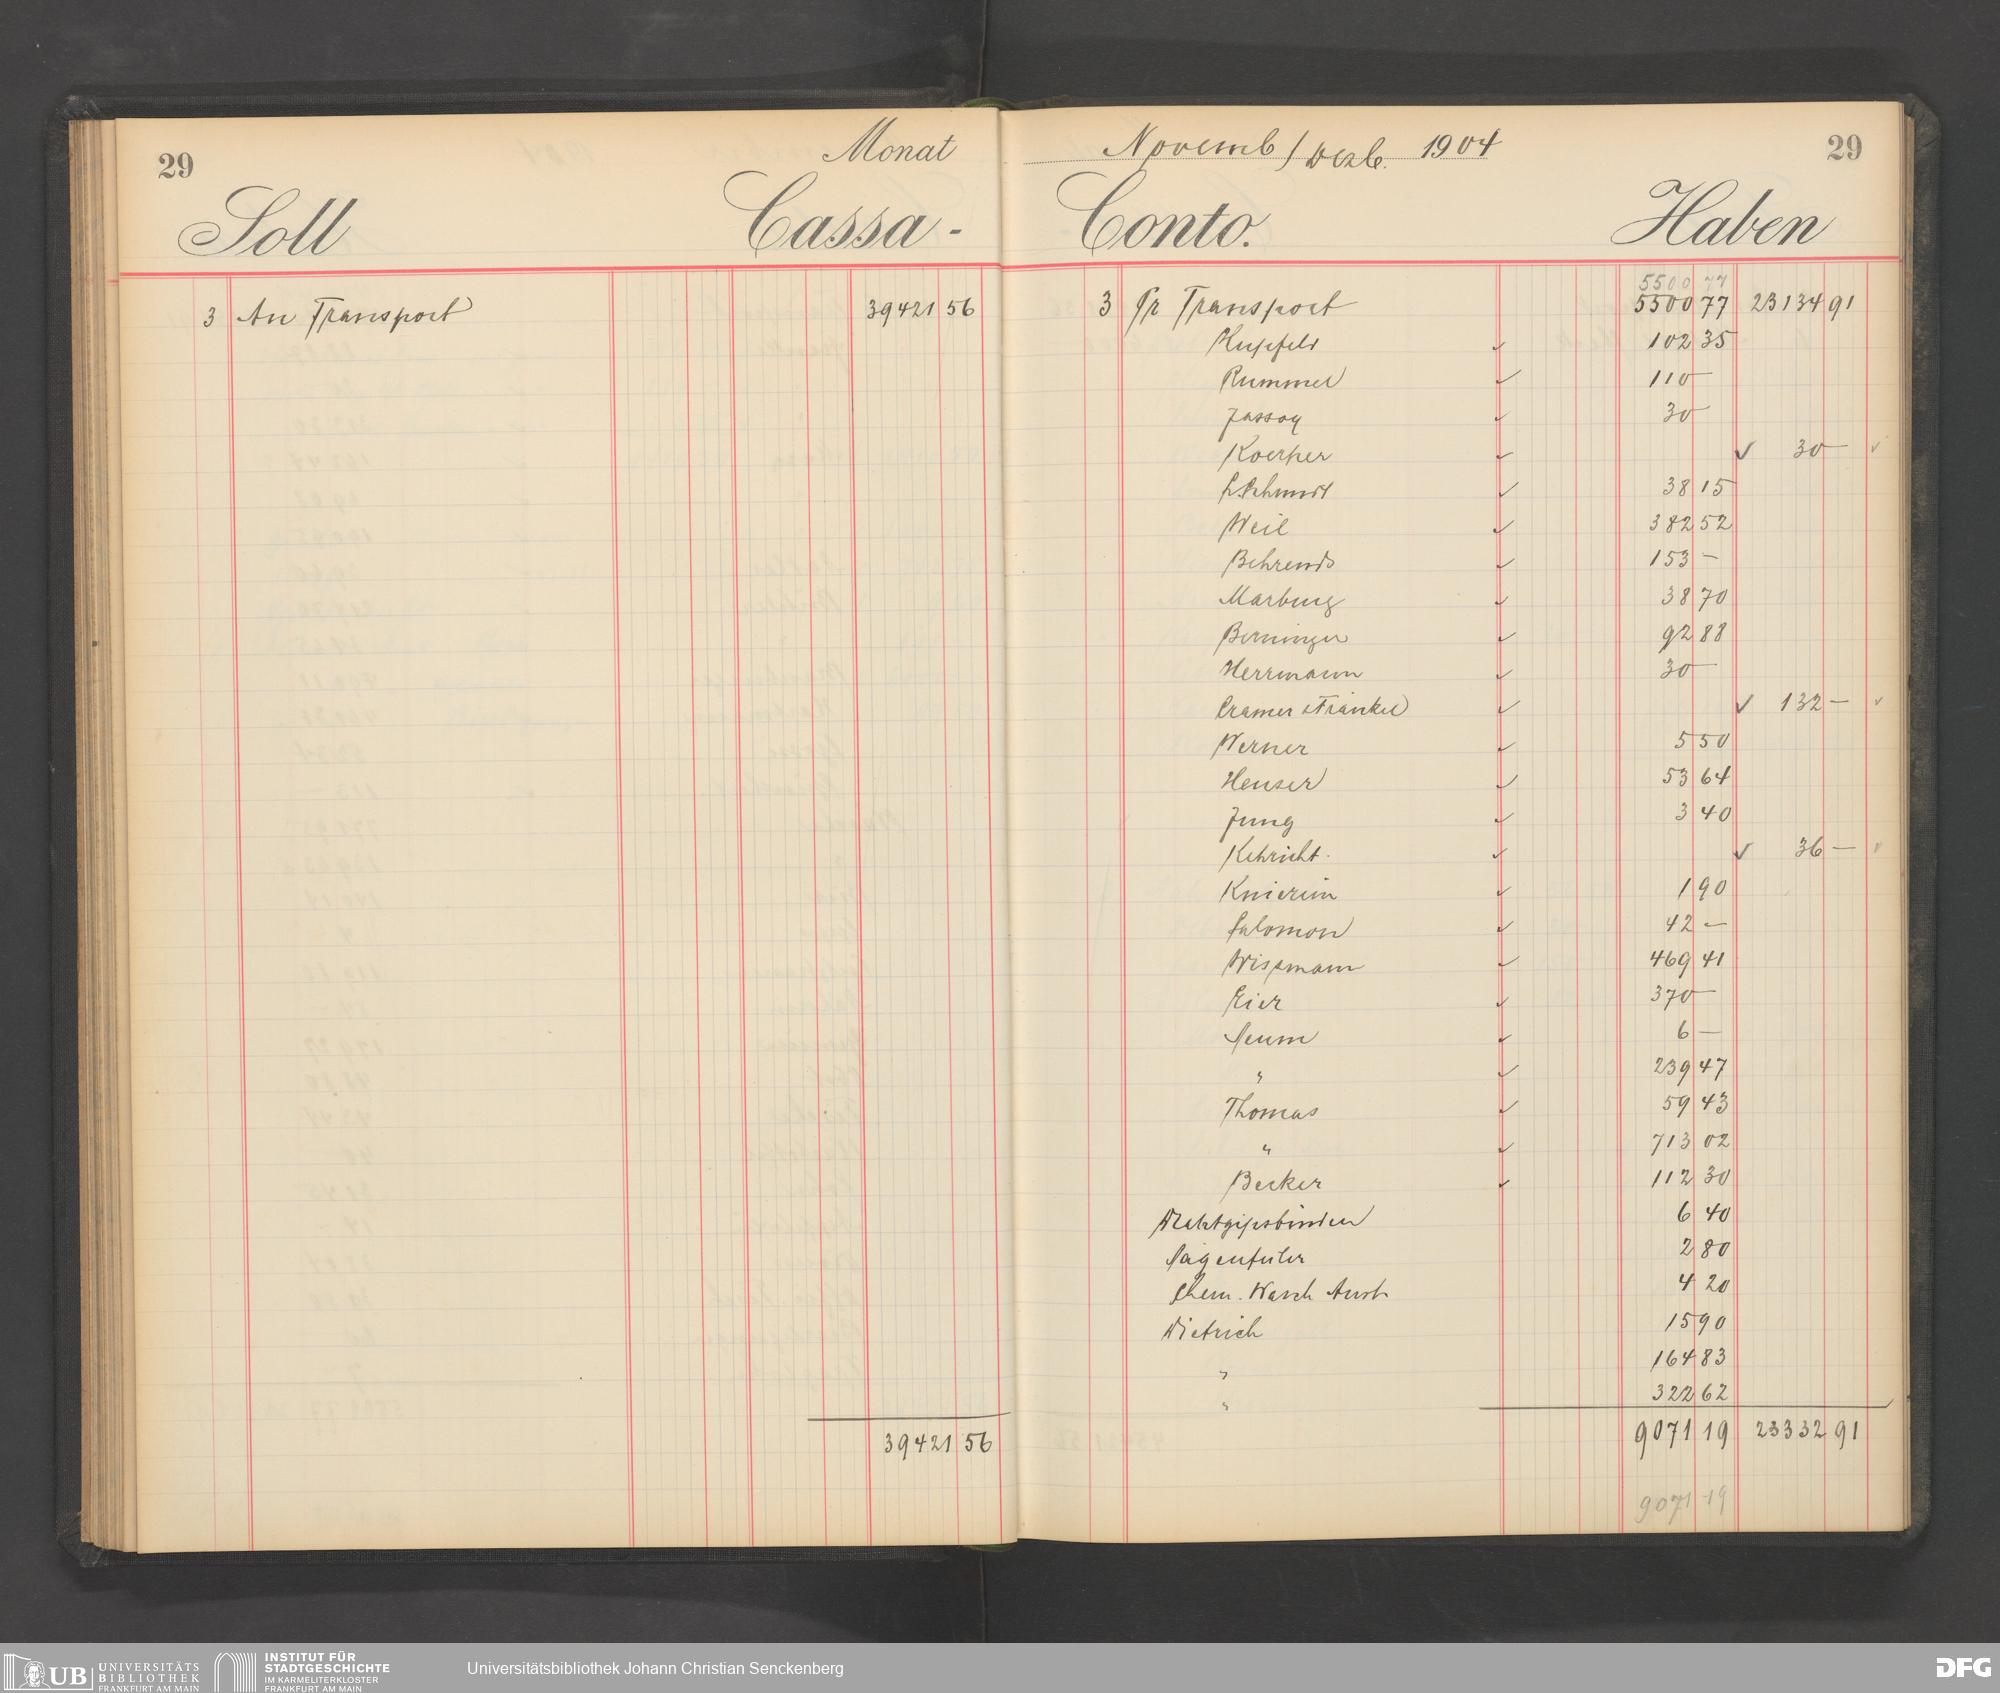 29
Monat
Novemb / Dezb. 1904
29
Soll
Cassa-
Conto.
Haben
3 An Transport 39421 56
39421 56
5500 77
3 Pr Transport 5500 77 23134 91
Hupfeld 102 35
Rummel 110 —
Jassoy 30 —
Koerper 30 —
L. Schmidt 38 15
Weil 382 52
Behrends 153 —
Marburg 38 70
Berninger 92 88
Herrmann 30 —
Cramer & Fränkel 132 —
Werner 5 50
Heuser 53 64
Jung 3 40
Kehricht. 36 —
Knierim 1 90
Salomon 42 —
Wissmann 469 41
Eier 370 —
Seum 6 —
" 239 47
Thomas 59 43
" 713 02
Becker 112 30
6 40
2 80
Chem. Wasch Anst. 4 20
Dietrich 15 90
" 164 83
" 322 62
9071 19 23332 91
9071 19
UB UNIVERSITÄTS
BIBLIOTHEK
FRANKFURT AM MAIN
INSTITUT FÜR
STADTGESCHICHTE
IM KARMELITERKLOSTER
FRANKFURT AM MAIN
Universitätsbibliothek Johann Christian Senckenberg
DFG